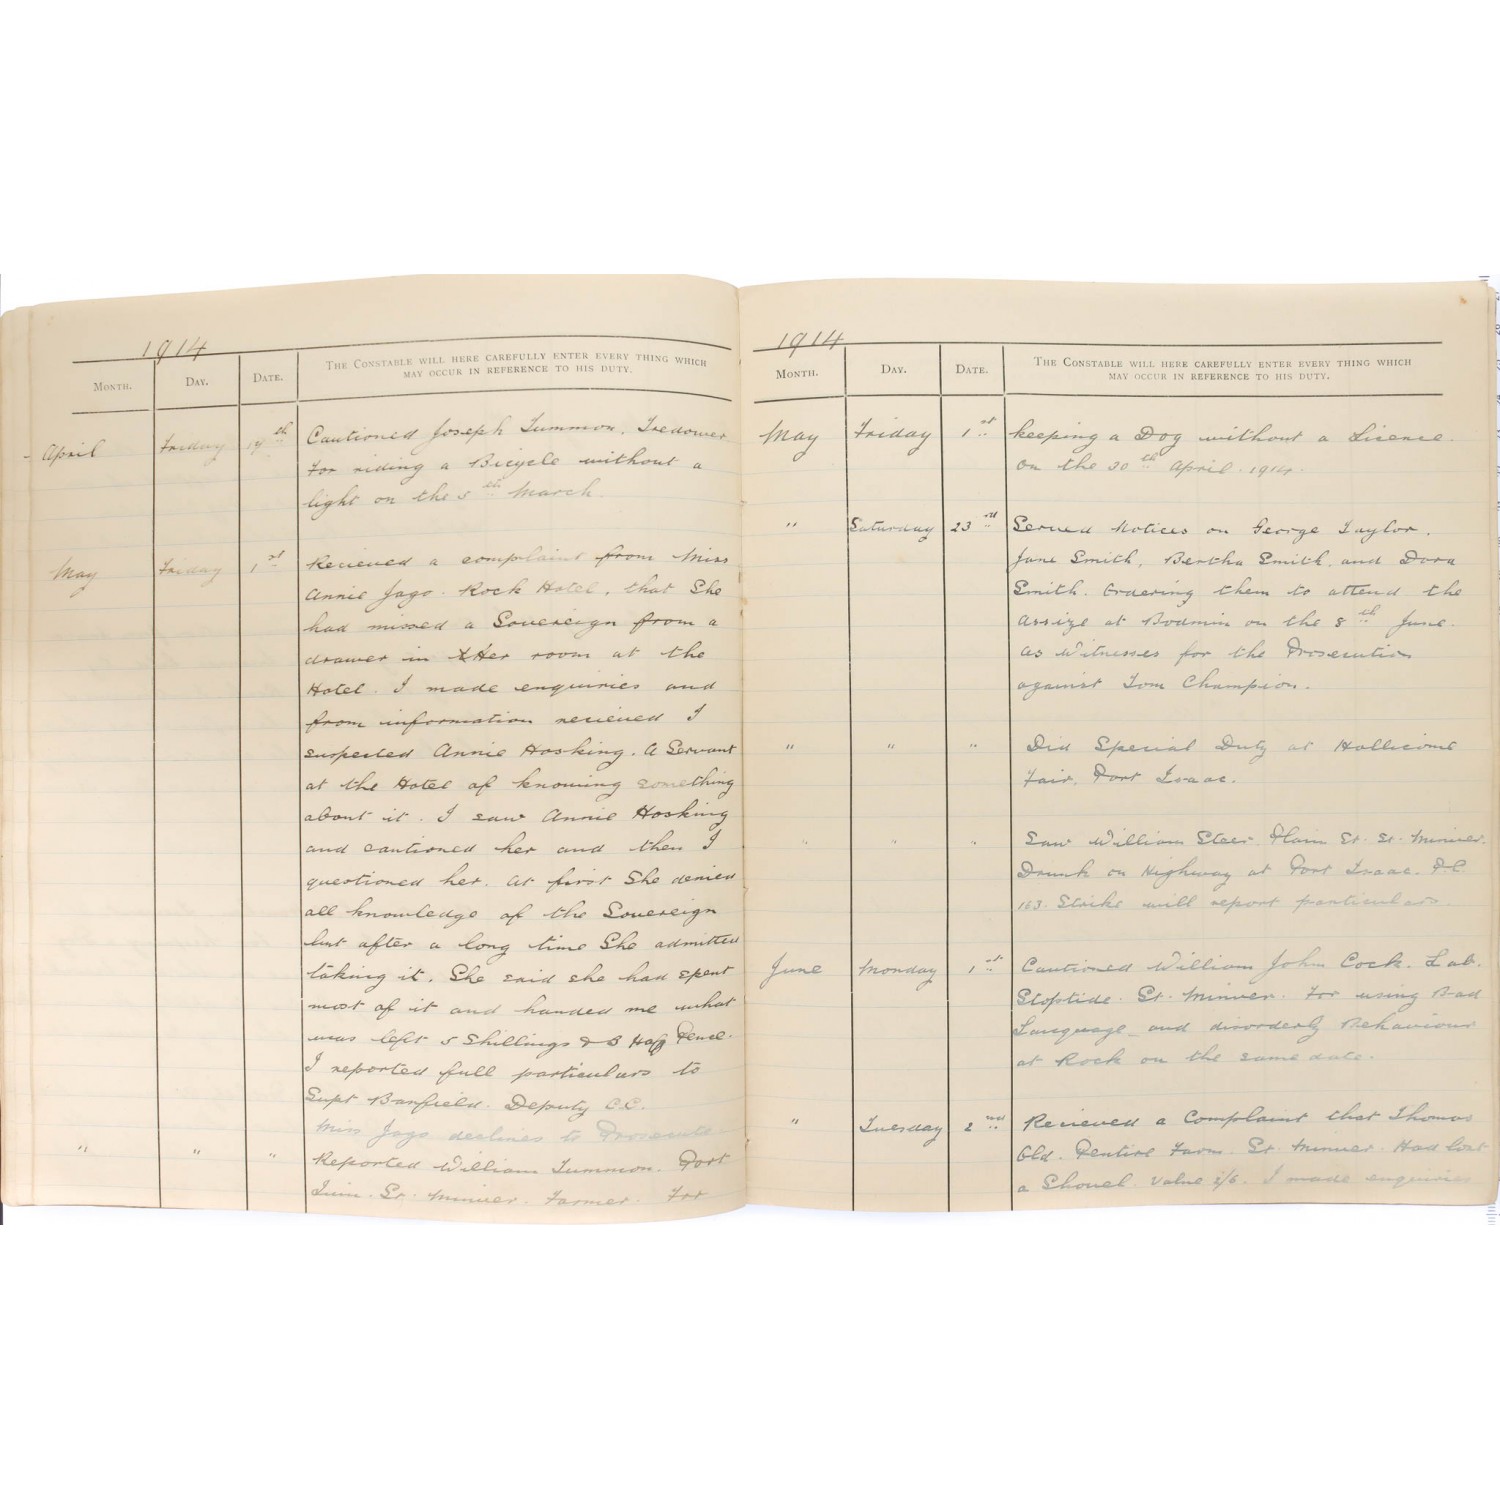 1914
MONTH. DAY. DATE. THE CONSTABLE WILL HERE CAREFULLY ENTER EVERY THING WHICH
MAY OCCUR IN REFERENCE TO HIS DUTY.
April Friday 17th Cautioned Joseph Tummon. Tredower
For riding a Bicycle without a
light on the 5th March.
May Friday 1st Recieved a complaint from Miss
Annie Jago. Rock Hotel, that She
had missed a Sovereign from a
drawer in Her room at the
Hotel. I made enquiries and
from information recieved I
suspected Annie Hosking. A Servant
at the Hotel of knowing something
about it. I saw Annie Hosking
and cautioned her and then I
questioned her. At first She denied
all knowledge of the Sovereign
but after a long time She admitted
taking it. She said she had spent
most of it and handed me what
was left 5 Shillings & 3 Half Pence.
I reported full particulars to
Supt Banfield. Deputy C.C.
Miss Jago declines to Prosecute
" " " Reported William Tummon. Port
St. Minver. Farmer. For
1914
MONTH. DAY. DATE. THE CONSTABLE WILL HERE CAREFULLY ENTER EVERY THING WHICH
MAY OCCUR IN REFERENCE TO HIS DUTY.
May Friday 1st keeping a Dog without a Licence
on the 30th April. 1914.
" Saturday 23rd Served Notices on George Taylor.
Jane Smith, Bertha Smith, and Dora
Smith. Ordering them to attend the
Assize at Bodmin on the 8th June.
As Witnesses for the Prosecution
against Tom Champion.
" " " Did Special Duty at Hollicome
Fair. Port Isaac.
" " " Saw William Steer Plain St. St. Minver.
Drunk on Highway at Port Isaac. P.C.
163. Strike will report particulars.
June Monday 1st Cautioned William John Cock. Lab.
Stoptide. St. Minver. For using Bad
Language and disorderly Behaviour
at Rock on the same date.
" Tuesday 2nd Recieved a Complaint that Thomas
Old. Pentire Farm. St. Minver. Had lost
a Shovel. Value 2/6. I made enquiries